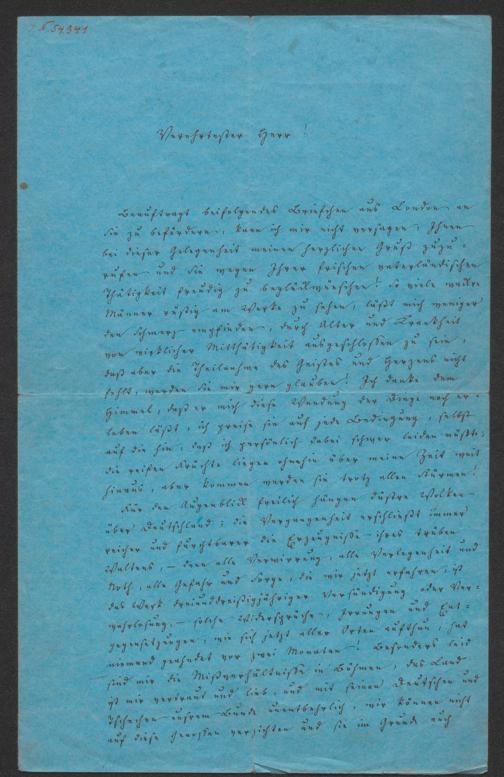 N. 54.341
Verehrtester Herr!
Beauftragt beifolgendes Briefchen aus London an
Sie zu befördern, kann ich mir nicht versagen, Ihnen
bei dieser Gelegenheit meinen herzlichen Gruß zuzu-
rufen und Sie wegen Ihrer frischen vaterländischen
Thätigkeit freudig zu beglückwünschen! So viele wackre
Männer rüstig am Werke zu sehen, läßt mich weniger
den Schmerz empfinden, durch Alter und Krankheit
von wirklicher Mitthätigkeit ausgeschlossen zu sein,
daß aber die Theilnahme des Geistes und Herzens nicht
fehlt, werden Sie mir gern glauben! Ich danke dem
Himmel, daß er mich diese Wendung der Dinge noch er-
leben läßt, ich preise sie auf jede Bedingung, selbst
auf die hin, daß ich persönlich dabei schwer leiden müßte;
die reifen Früchte liegen ohnehin über meine Zeit weit
hinaus, aber kommen werden sie trotz allen Stürmen!
Für den Augenblick freilich hängen düstre Wolken
über Deutschland; die Vergangenheit erschließt immer
reicher und furchtbarer die Erzeugnisse ihres trüben
Waltens, – denn alle Verwirrung, alle Verlegenheit und
Noth, alle Gefahr und Sorge, die wir jetzt erfahren, ist
das Werk dreiunddreißigjähriger Versündigung oder Ver-
wahrlosung, – solche Widersprüche, Irrungen und Ent-
gegensetzungen, wie sich jetzt aller Orten aufthun, hat
niemand geahndet vor zwei Monaten! Besonders leid
sind mir die Mißverhältnisse in Böhmen, das Land
ist mir vertraut und lieb, und mit seinen Deutschen und
Tschechen unsrem Bunde unentbehrlich, wir können nicht
auf diese Genossen verzichten und sie im Grunde auch